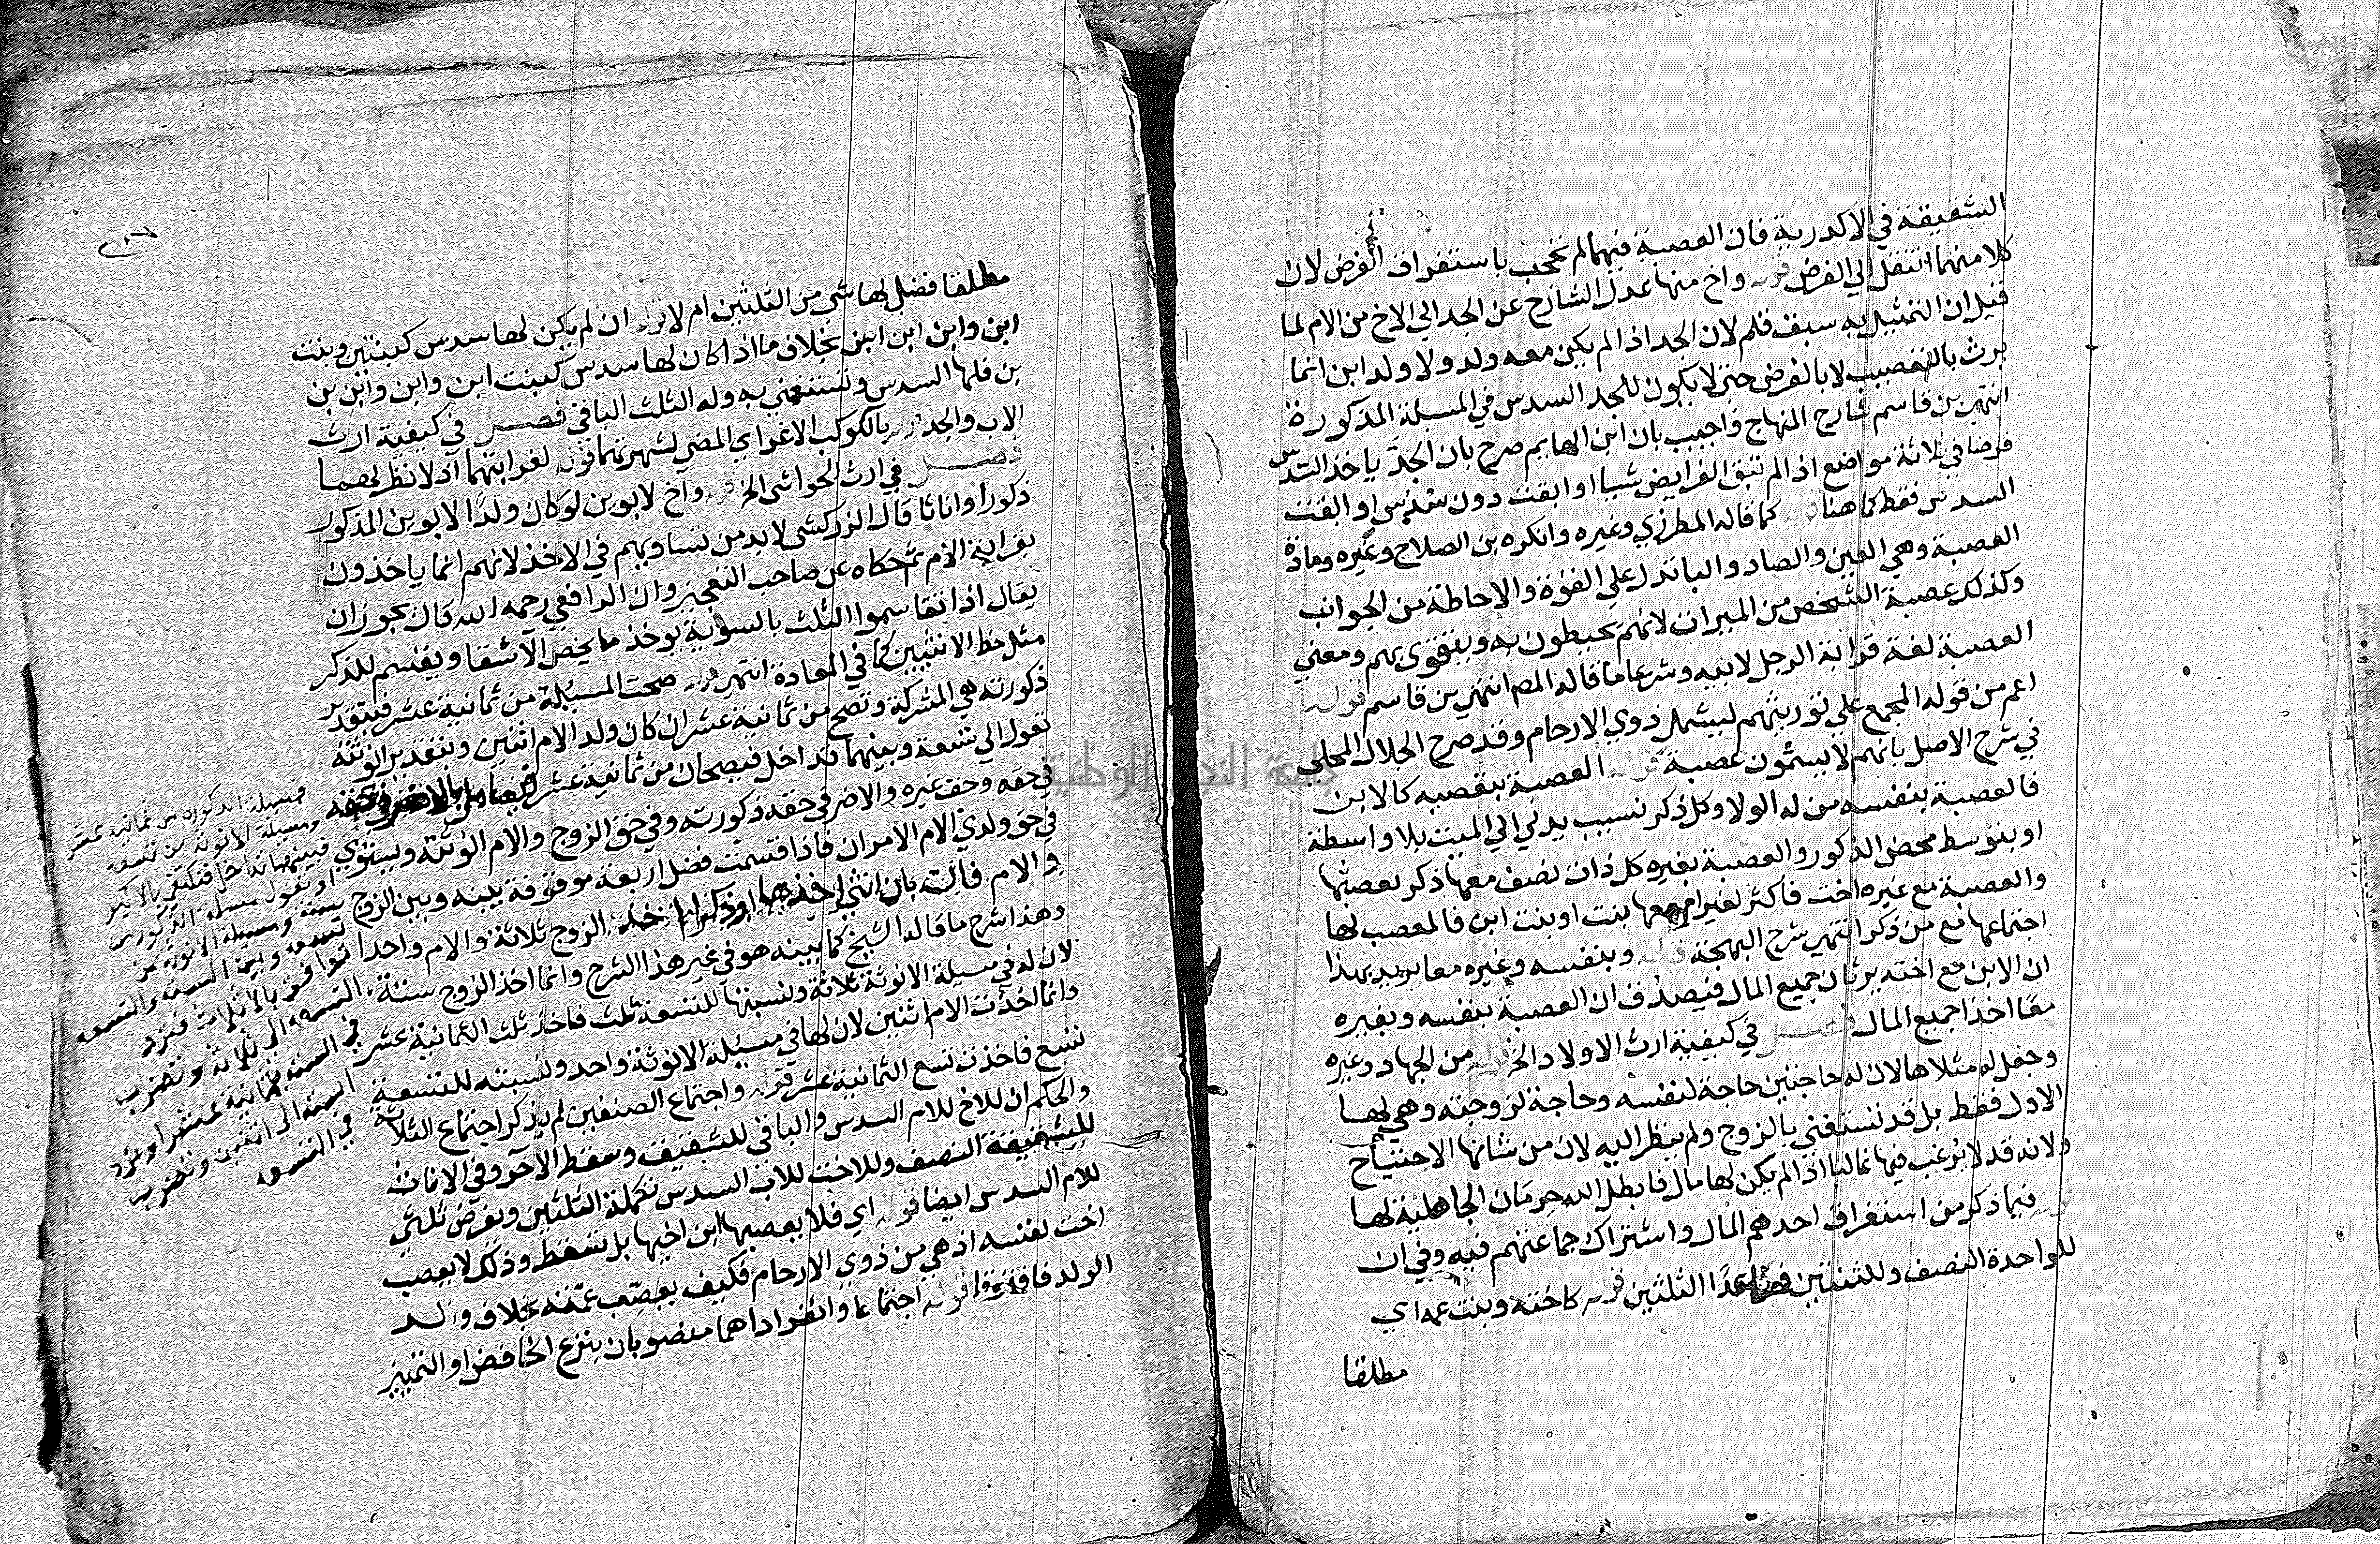 الشقيقة في الاكدرية فان العصبة فيهما لم تحجب باستغراق الفرض لان
كلا منهما انتقل الي الفرض قوله واخ منها عدل الشارح عن الجد الي الاخ من الام لما
قيل ان التمثيل به سبق قلم لان الجد اذا لم يكن معه ولد ولا ولد ابن انما
يرث بالتعصيب لا بالفرض حتى لا يكون للجد السدس في المسئلة المذكورة
انتهى بن قاسم شارح المنهاج واجيب بان ابن الهايم صرح بان الجد ياخذ السدس
فرضا في ثلاثة مواضع اذا لم تبق الفرايض شيا او ابقت دون سدس او ابقت
السدس فقط كما هنا قوله كما قاله المطرزي وغيره وانكره بن الصلاح وغيره ومادة
العصبة وهي العين والصاد والبا تدل علي القوة والاحاطة من الجوانب
وكذلك عصبة الشخص من الميراث لانهم يحيطون به ويتقوى بهم ومعني
العصبة لغة قرابة الرجل لابيه وشرعا ما قاله المص انتهى بن قاسم قوله
اعم من قوله المجمع علي توريثهم ليشمل ذوي الارحام وقد صرح الجلال المحلي
في شرح الاصل بانهم لا يسمون عصبة قوله العصبة بنفسه كالابن
فالعصبة بنفسه من له الولا وكل ذكر نسيب يدلي الي الميت بلا واسطة
او بتوسط محض الذكور والعصبة بغيره كل ذات نصف معها ذكر يعصبها
والعصبة مع غيره اخت فاكثر لغير ام معها بنت او بنت ابن فالمعصب لها
اجتماعها مع من ذكر انتهى شرح البهجة قوله وبنفسه وغيره معا يريد بهذا
ان الابن مع اخته يرثان جميع المال فيصدق ان العصبة بنفسه وبغيره
معا اخذا جميع المال فصل في كيفية ارث الاولاد الخ قوله من الجهاد وغيره
وجعل له مثلاها لان له حاجتين حاجة لنفسه وحاجة لزوجته وهي لها
الاول فقط بل قد تستغني بالزوج ولم ينظر اليه لان من شانها الاحتياج
ولانه قد لا يرغب فيها غالبا اذا لم يكن لها مال فابطل الله حرمان الجاهلية لها
قوله فيما ذكر من استغراق احدهم المال واشتراك جماعتهم فيه وفي ان
للواحدة النصف وللثنتين فصاعدا الثلثين قوله كاخته وبنت عمه اي
مطلقا
٢١٦
مطلقا فضل لها شي من الثلثين ام لا قوله ان لم يكن لها سدس كبنتين وبنت
ابن وابن ابن ابن بخلاف ما اذا كان لها سدس كبنت ابن وابن وابن بن
بن فلها السدس وتستغني به وله الثلث الباقي فصل في كيفية ارث
الاب والجد قوله بالكوكب الاغر اي المضي لشهرتهما قوله لغرابتهما اذ لا نظر لهما
فصل في ارث الحواشي الخ قوله واخ لابوين لو كان ولدا الابوين المذكور
ذكورا واناثا قال الزركشي لا بد من تساويهم في الاخذ لانهم انما ياخذون
بقرابة الام ثم حكاه عن صاحب التعجيز وان الرافعي رحمه الله قال يجوز ان
يقال اذا تقاسموا الثلث بالسوية يوخذ ما يخص الاشقا ويقسم للذكر
مثل حظ الانثيين كما في المعادة انتهى قوله صحت المسئلة من ثمانية عشر فبتقدير
ذكورته هي المشركة وتصح من ثمانية عشر ان كان ولد الام اثنين وبتقدير انوثته
تعول الي تسعة وبينهما تداخل فيصحان من ثمانية عشر
في حقه وحق غيره والاضر في حقه ذكورته وفي حق الزوج والام انوثته ويستوي
في حق ولدي الام الامران فاذا قسمت فضل اربعة موقوفة بينه وبين الزوج
والام فان بان انثي اخذها او ذكرا اخذ الزوج ثلاثة والام واحدا
وهذا شرح ما قاله الشيخ كما بينه هو في غير هذا الشرح وانما اخذ الزوج ستة
لان له في مسيلة الانوثة ثلاثة ونسبتها للتسعة ثلث فاخذ ثلث الثمانية عشر
وانما اخذت الام اثنين لان لها في مسيلة الانوثة واحد ونسبته للتسعة
تسع فاخذت تسع الثمانية عشر قوله واجتماع الصنفين لم يذكر اجتماع الثلاثة
والحكم ان للاخ للام السدس والباقي للشقيق وسقط الآخر وفي الاناث
للشقيقة النصف وللاخت للاب السدس تكملة الثلثين ويفرض ثلثي
للام السدس ايضا قوله اي فلا يعصبها ابن اخيها بل تسقط وذلك لا يعصب
اخت نفسه اذ هي من ذوي الارحام فكيف يعصب عمته بخلاف ولد
الولد فافترقا قوله اجتماعا وانفرادا هما منصوبان بنزع الخافض او التمييز
فمسيلة الذكوره من ثمانيه عشر
ومسيلة الانوثة من تسعه
فبينهما تداخل فتكتفي بالاكبر
او تقول مسيلة الذكوره من
ستة ومسيلة الانوثة من
تسعه وبين الستة والتسعه
توافق بالاثلاث فترد
التسعه الي ثلاثة وتضرب
في الستة بثمانية عشر او ترد
الستة الي اثنين وتضرب
في التسعه
جامعة النجاح الوطنية